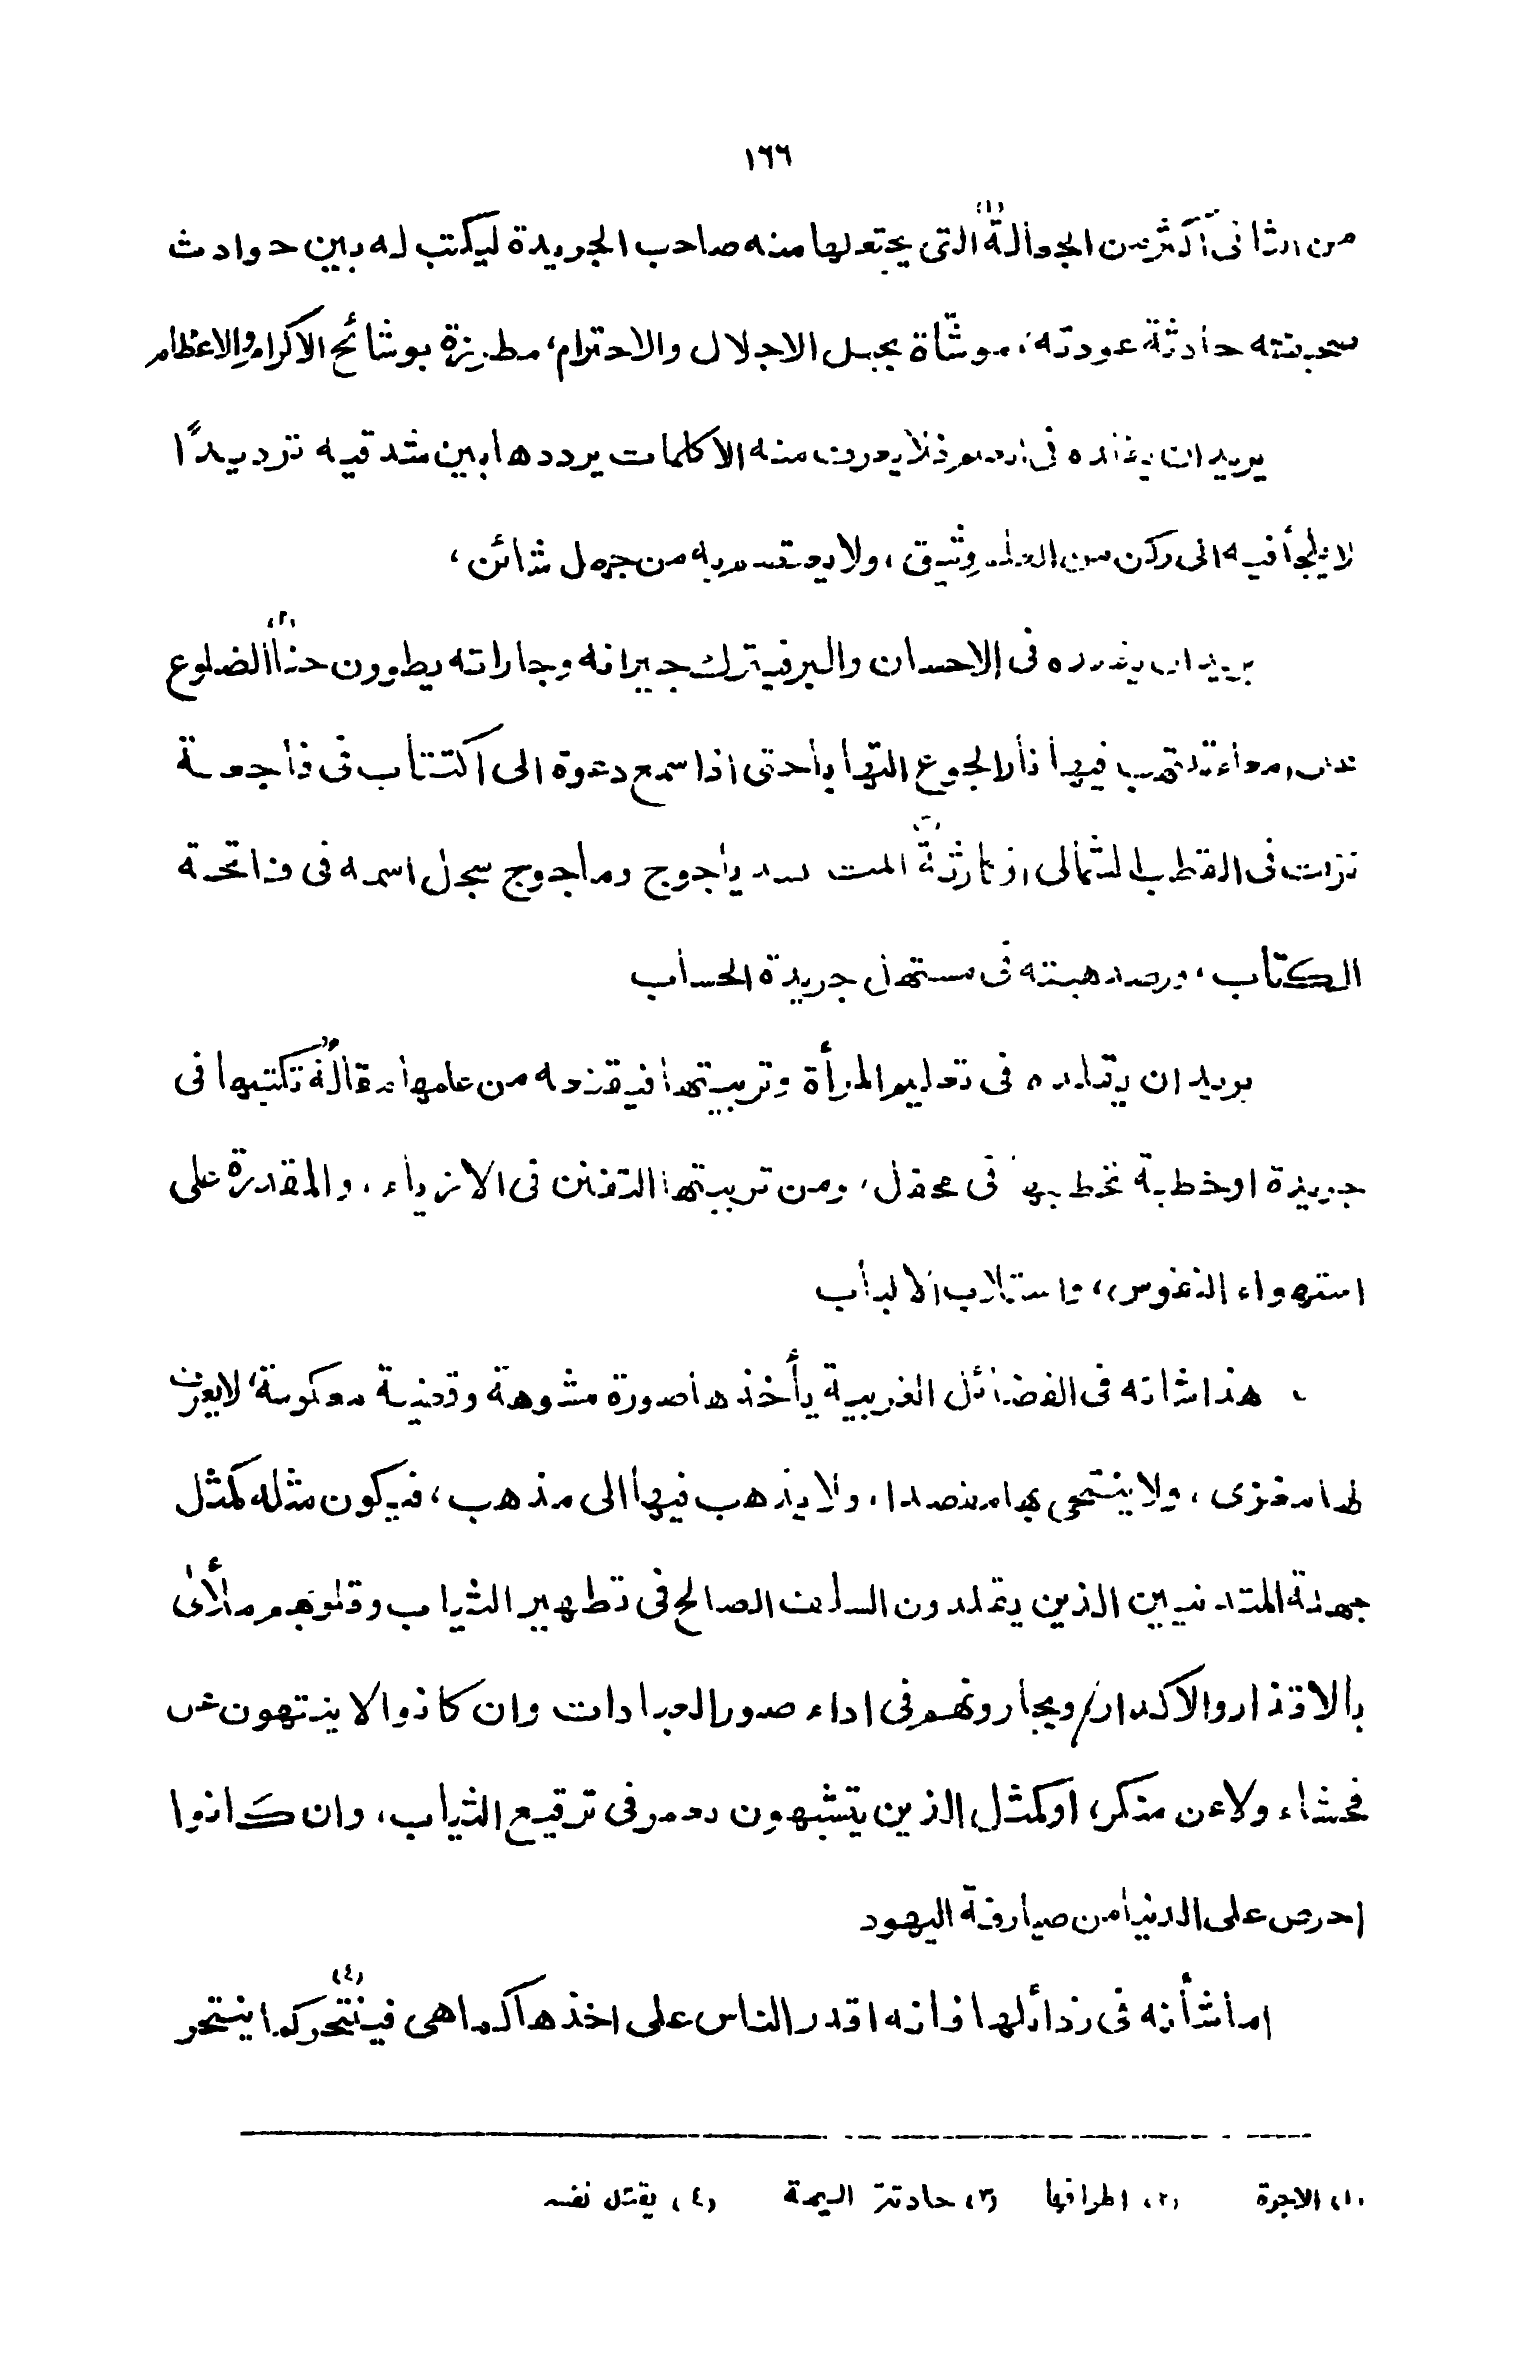 ١٦٦
من الثانى اكثر من الجعالة(١) التى يجتعلها منه صاحب الجريدة ليكتب له بين حوادث
صحيفته حادثة عودته، موشاة بجمل الاجلال والاحترام، مطرزة بوشائح الاكرام والاعظام
يريد ان يقلده فى العلم فلا يعرف منه الا كلمات يرددها بين شدقيه ترديدًا
لا يلجأ فيه الى ركن من العلم وثيق، ولا يعتصم به من جهل شائن،
يريد ان يقلده فى الاحسان والبر فيترك جيرانه وجاراته يطوون حنايا(٢) الضلوع
على امعاء تلتهب فيها نار الجوع التهابا حتى اذا سمع دعوة الى اكتتاب فى فاجعة
نزلت فى القطب الشمالى او كارثة(٣) المت بسد ياجوج وماجوج سجل اسمه فى فاتحة
الكتاب، ورصد هبته فى مستهل جريدة الحساب
يريد ان يقلده فى تعليم المرأة وتربيتها فيقنعه من علمها مقالة تكتبها فى
جريدة او خطبة تخطبها فى محفل، ومن تربيتها التفنن فى الازياء، والمقدرة على
استهواء النفوس، واستلاب الالباب
هذا شانه فى الفضائل الغربية يأخذها صورة مشوهة وقضية معكوسة، لا يعرف
لها مغزى، ولا ينتحى بها مقصدا، ولا يذهب فيها الى مذهب، فيكون مثله كمثل
جهلة المتدينين الذين يقلدون السلف الصالح فى تطهير الثياب وقلوبهم ملأى
بالاقذار والاكدار، ويجارونهم فى اداء صور العبادات وان كانوا لا ينتهون عن
فحشاء ولا عن منكر، او كمثل الذين يتشبهون بعمر فى ترقيع الثياب، وان كانوا
احرص على الدنيا من صيارفة اليهود
اما شأنه فى رذائلها فانه اقدر الناس على اخذها كما هى فينتحر(٤) كما ينتحر
(١) الاجرة (٢) اطرافها (٣) حادثة اليمة (٤) يقتل نفسه